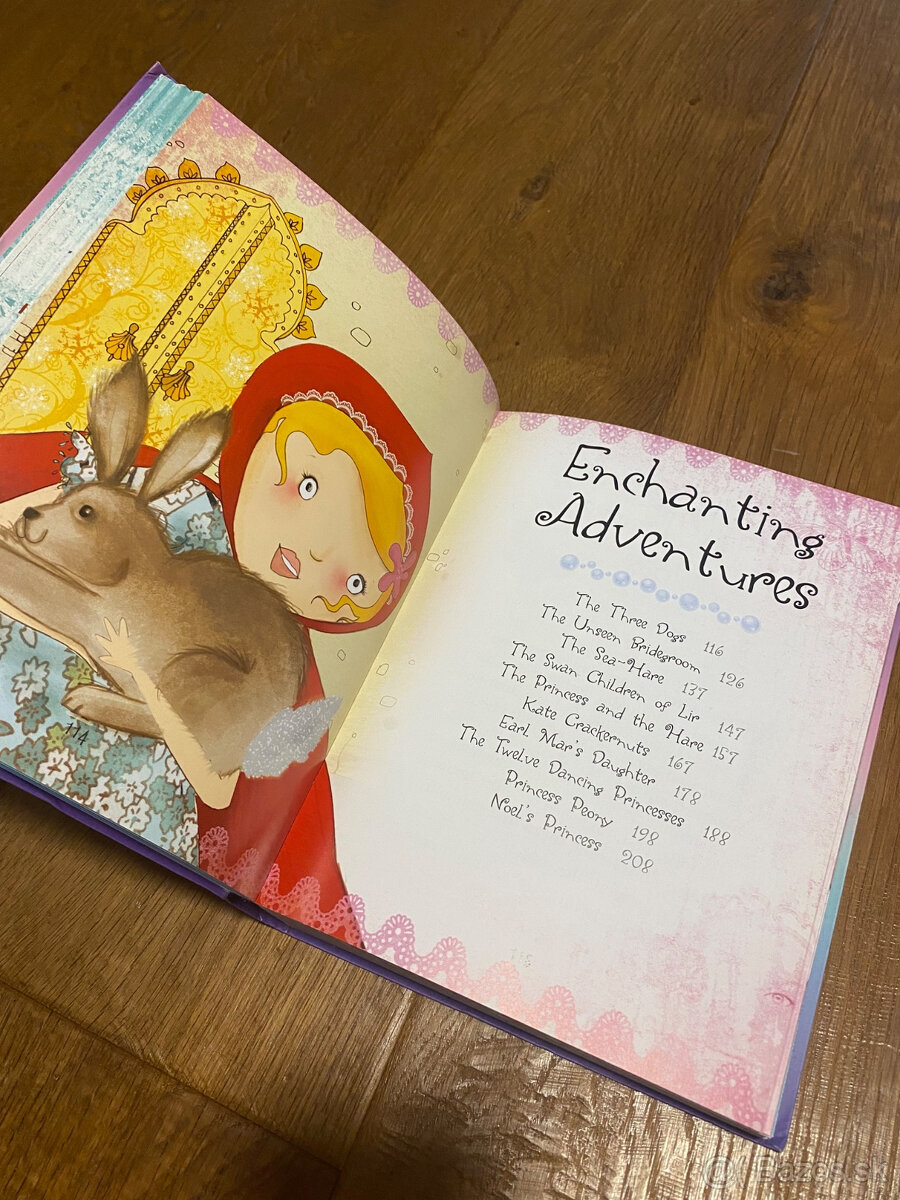 114
Enchanting
Adventures
The Three Dogs 116
The Unseen Bridegroom 126
The Sea-Hare 137
The Swan Children of Lir 147
The Princess and the Hare 157
Kate Crackernuts 167
Earl Mar's Daughter 178
The Twelve Dancing Princesses 188
Princess Peony 198
Noel's Princess 208
Bazos.sk